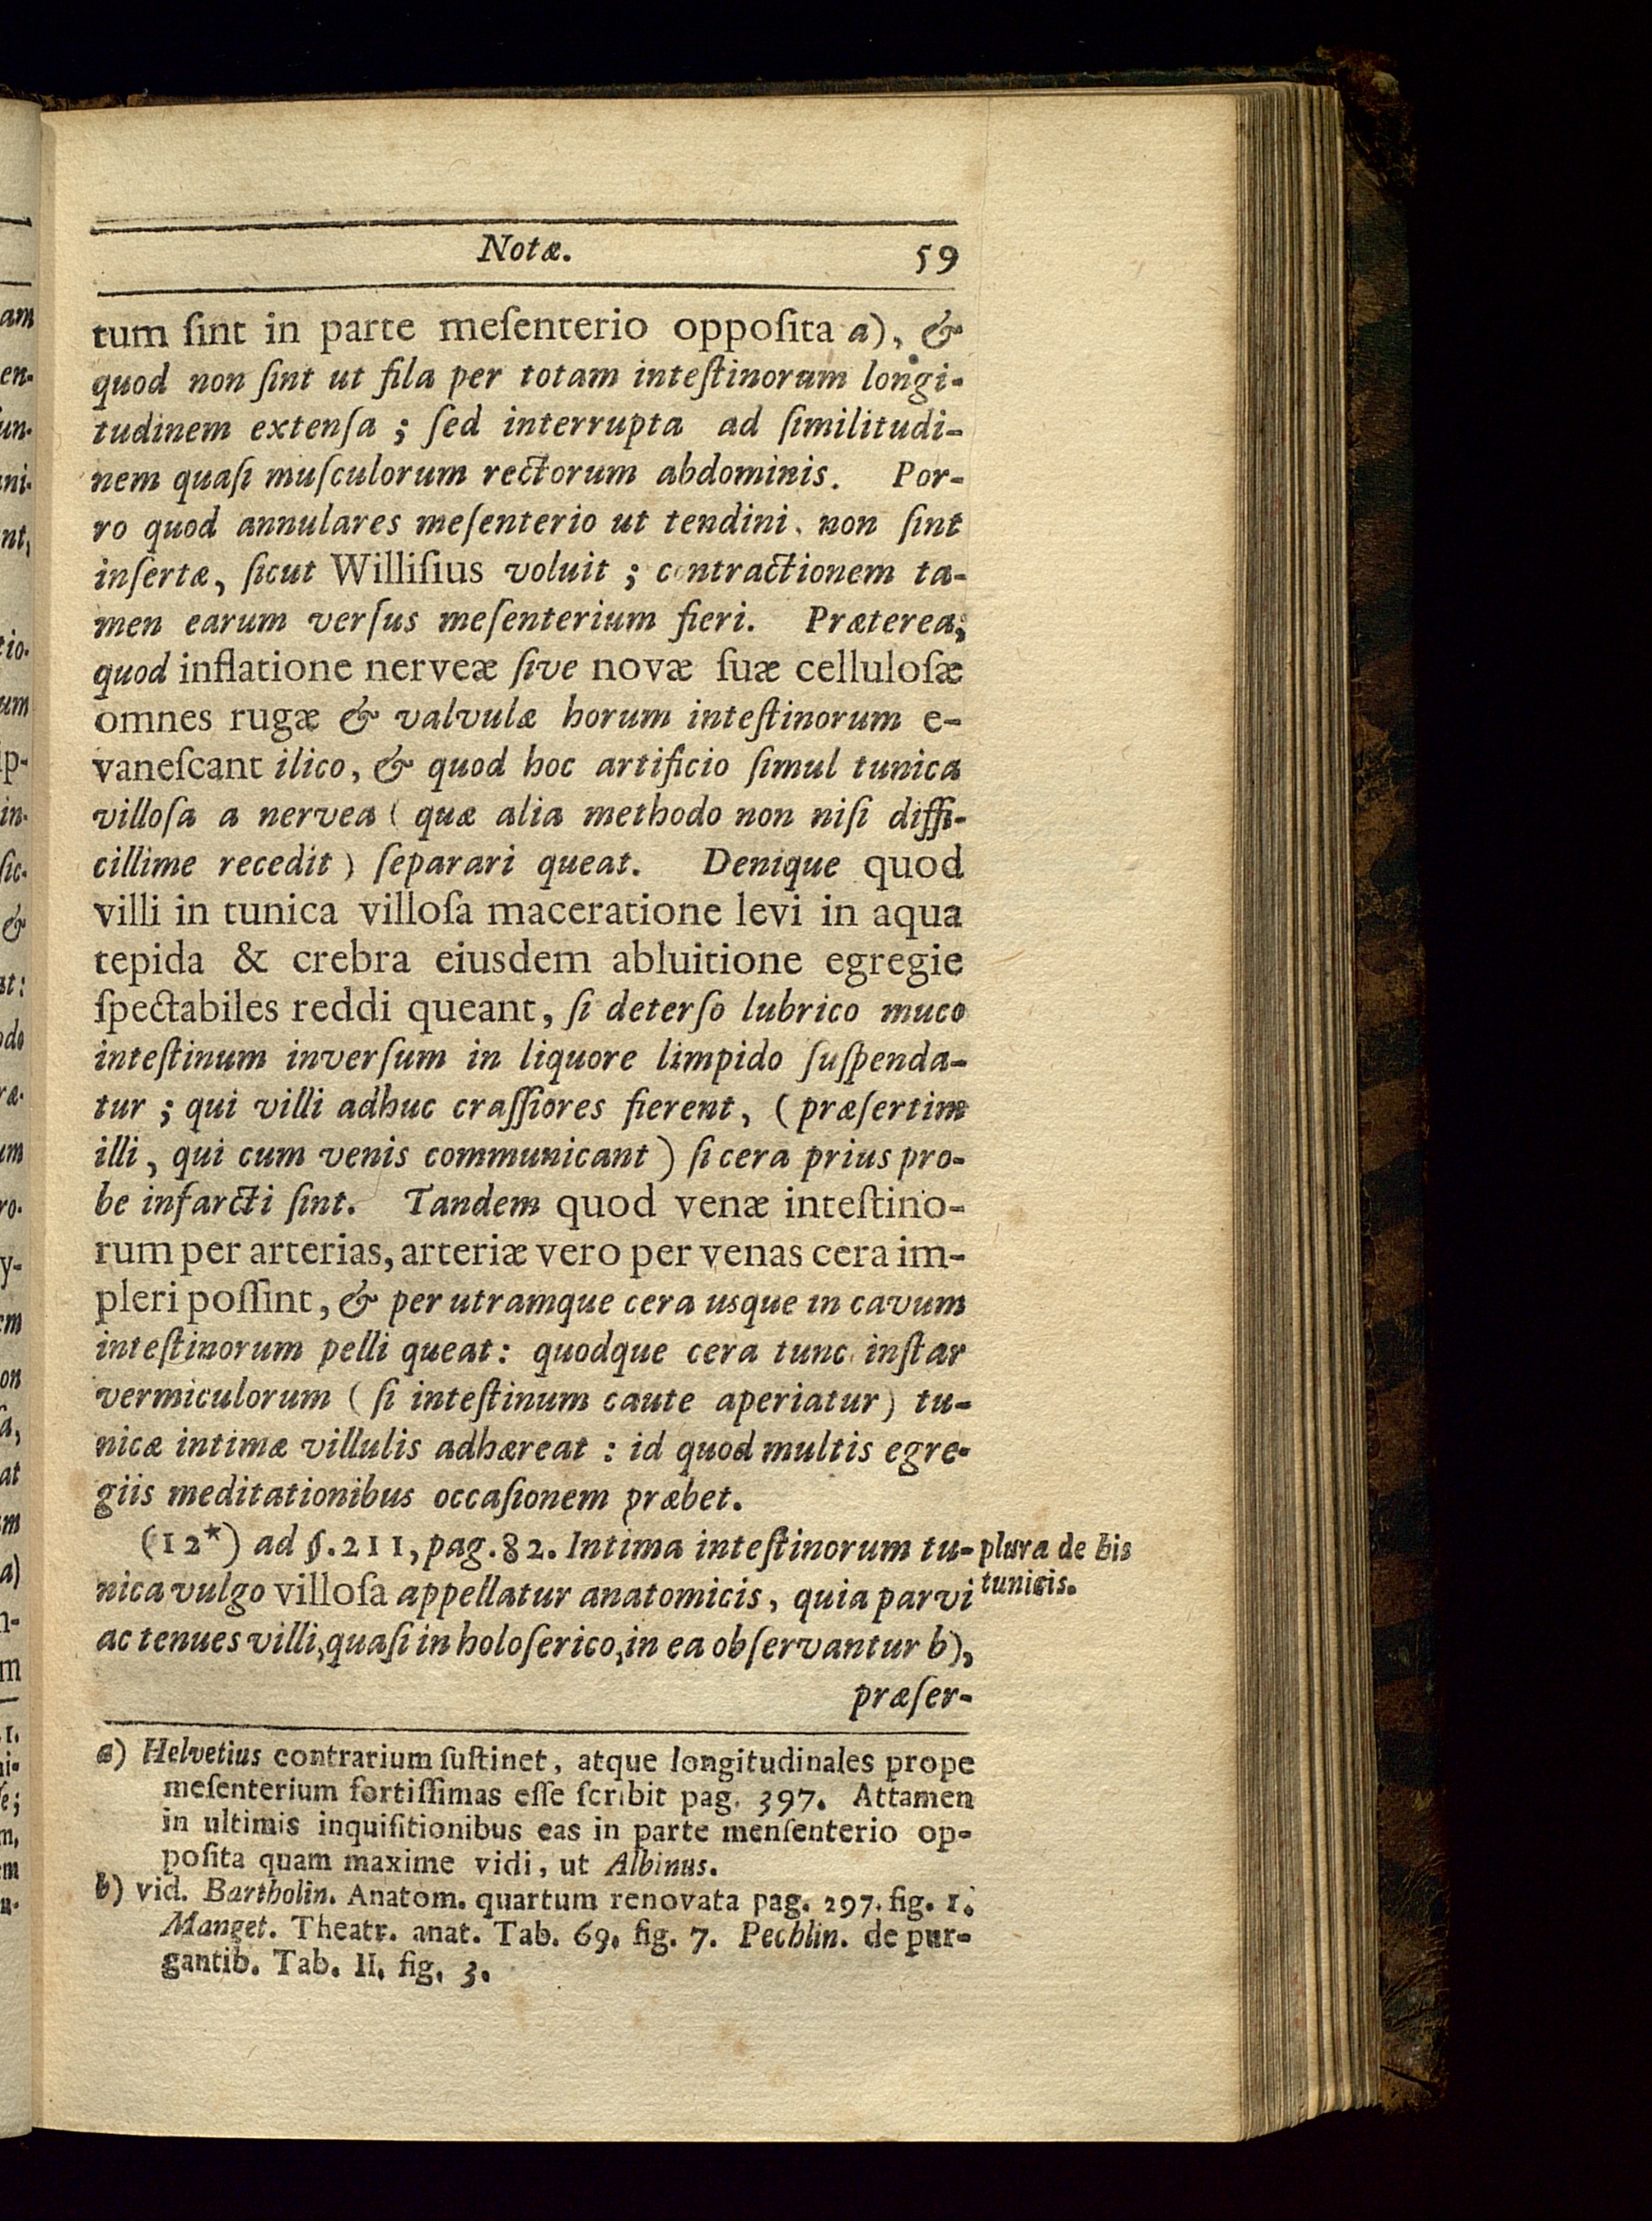 Notæ. 59
tum ſint in parte meſenterio oppoſita a), &
quod non ſint ut fila per totam inteſtinorum longi-
tudinem extenſa ; ſed interrupta ad ſimilitudi-
nem quaſi muſculorum rectorum abdominis. Por-
ro quod annulares meſenterio ut tendini, non ſint
inſertæ, ſicut Williſius voluit ; contractionem ta-
men earum verſus meſenterium fieri. Præterea,
quod inflatione nerveæ ſive novæ ſuæ celluloſæ
omnes rugæ & valvulæ horum inteſtinorum e-
vaneſcant ilico, & quod hoc artificio ſimul tunica
villoſa a nervea ( quæ alia methodo non niſi diffi-
cillime recedit ) ſeparari queat. Denique quod
villi in tunica villoſa maceratione levi in aqua
tepida & crebra eiusdem abluitione egregie
ſpectabiles reddi queant, ſi deterſo lubrico muco
inteſtinum inverſum in liquore limpido ſuſpenda-
tur ; qui villi adhuc craſſiores fierent, ( præſertim
illi, qui cum venis communicant ) ſi cera prius pro-
be infarcti ſint. Tandem quod venæ inteſtino-
rum per arterias, arteriæ vero per venas cera im-
pleri poſſint, & per utramque cera usque in cavum
inteſtinorum pelli queat: quodque cera tunc inſtar
vermiculorum ( ſi inteſtinum caute aperiatur) tu-
nicæ intimæ villulis adhæreat : id quod multis egre-
giis meditationibus occaſionem præbet.
(12*) ad §. 211, pag. 82. Intima inteſtinorum tu-
nica vulgo villoſa appellatur anatomicis, quia parvi
ac tenues villi, quaſi in holoſerico, in ea obſervantur b),
præſer-
plura de his
tunicis.
a) Helvetius contrarium ſuſtinet, atque longitudinales prope
meſenterium fortiſſimas eſſe ſcribit pag. 397. Attamen
in ultimis inquiſitionibus eas in parte menſenterio op-
poſita quam maxime vidi, ut Albinus.
b) vid. Bartholin. Anatom. quartum renovata pag. 297. fig. 1.
Manget. Theatr. anat. Tab. 69. fig. 7. Pechlin. de pur-
gantib. Tab. II. fig. 3.